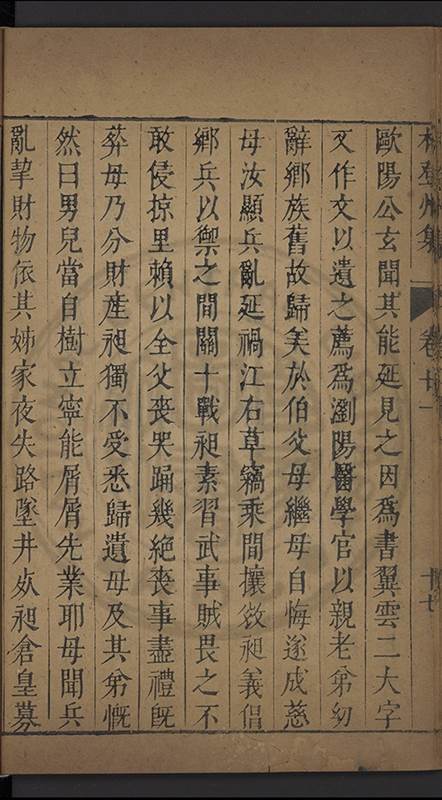 林登州集 卷廿一 十七
歐陽公玄聞其能延見之因爲書翼雲二大字
又作文以遺之薦爲瀏陽醫學官以親老弟幼
辭鄉族舊故歸美於伯父母繼母自悔遂成慈
母汝顯兵亂延禍江右草竊乘間攘敓昶義侣
鄉兵以禦之間關十戰昶素習武事賊畏之不
敢侵掠里賴以全父喪哭踊幾絶喪事盡禮旣
葬母乃分財産昶獨不受悉歸遺母及其弟慨
然曰男兒當自樹立寧能屑屑先業耶母聞兵
亂挈財物依其姊家夜失路墜井㱠昶倉皇募